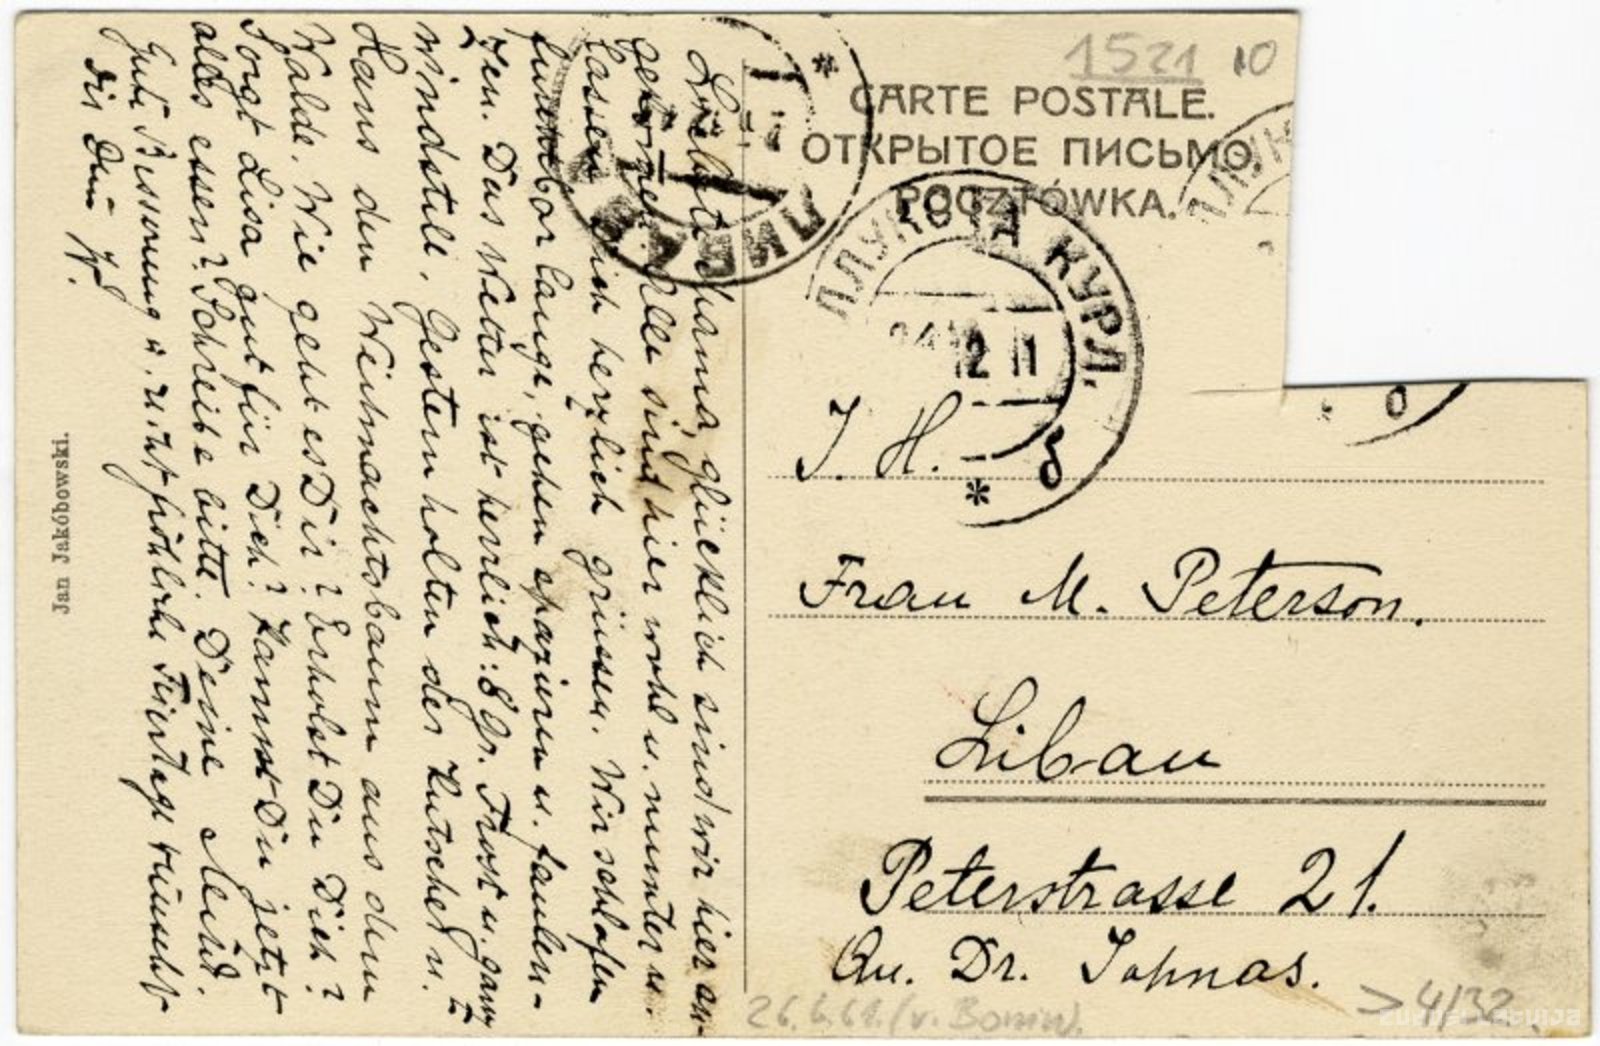 1521 10
CARTE POSTALE.
ОТКРЫТОЕ ПИСЬМО.
POCZTÓWKA.
ПЛУК КУРЛ.
2 11
б
ЛИБАВА
J. H.
Frau M. Peterson.
Libau
Peterstrasse 21.
Qu. Dr. Johnas.
26.6.61. (v. Bonin).
>4/32
zudusilatvija
Liebste Mama, glücklich sind wir hier an-
gekommen. Alle sind hier wohl u. munter u.
lassen Dich herzlich grüssen. Wir schlafen
furchtbar lange, gehen spazieren u. faulen-
zen. Das Wetter ist herrlich: 8 Gr. Frost u. ganz
windstill. Gestern holten der Kutscher u.
Hans den Weihnachtsbaum aus dem
Walde. Wie geht es Dir? Erholst Du Dich?
Sorgt Lisa gut für Dich? Kannst Du jetzt
alles essen? Schreibe bitte. Deine
Gute Besserung u. fröhliche Feiertage wünscht
dir Dein W.
Jan Jakóbowski.